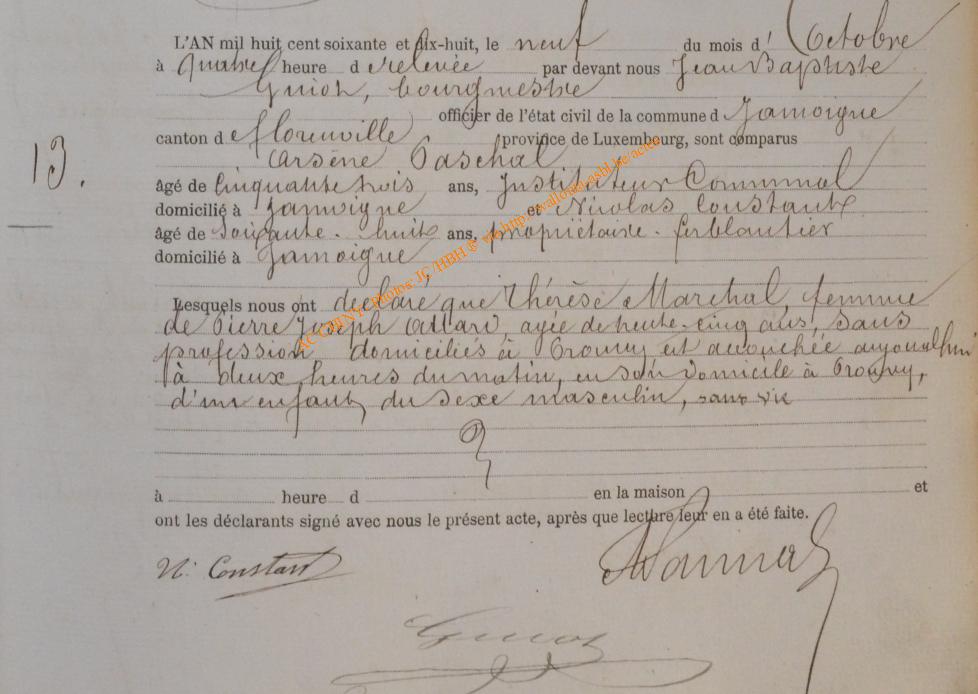 L'AN mil huit cent soixante et dix-huit, le neuf du mois d' Octobre
à quatre heure d relevée par devant nous Jean Baptiste
Guiot, bourgmestre
officier de l'état civil de la commune d Jamoigne
canton de florenville province de Luxembourg, sont comparus
Arsène Paschal
13.
âgé de Cinquante trois ans, Instituteur Communal
domicilié à Jamoigne et Nicolas Constant
âgé de Soixante-huit ans, propriétaire-ferblantier
domicilié à Jamoigne
Lesquels nous ont déclaré que Thérèse Maréchal, femme
de Pierre Joseph Allard, agée de trente-cinq ans, sans
profession domiciliés à Prouvy est accouchée aujourd'hui
à deux heures du matin, en son domicile à Prouvy,
d'un enfant du sexe masculin, sans vie
à heure d en la maison et
ont les déclarants signé avec nous le présent acte, après que lecture leur en a été faite.
N. Constant
Guiot